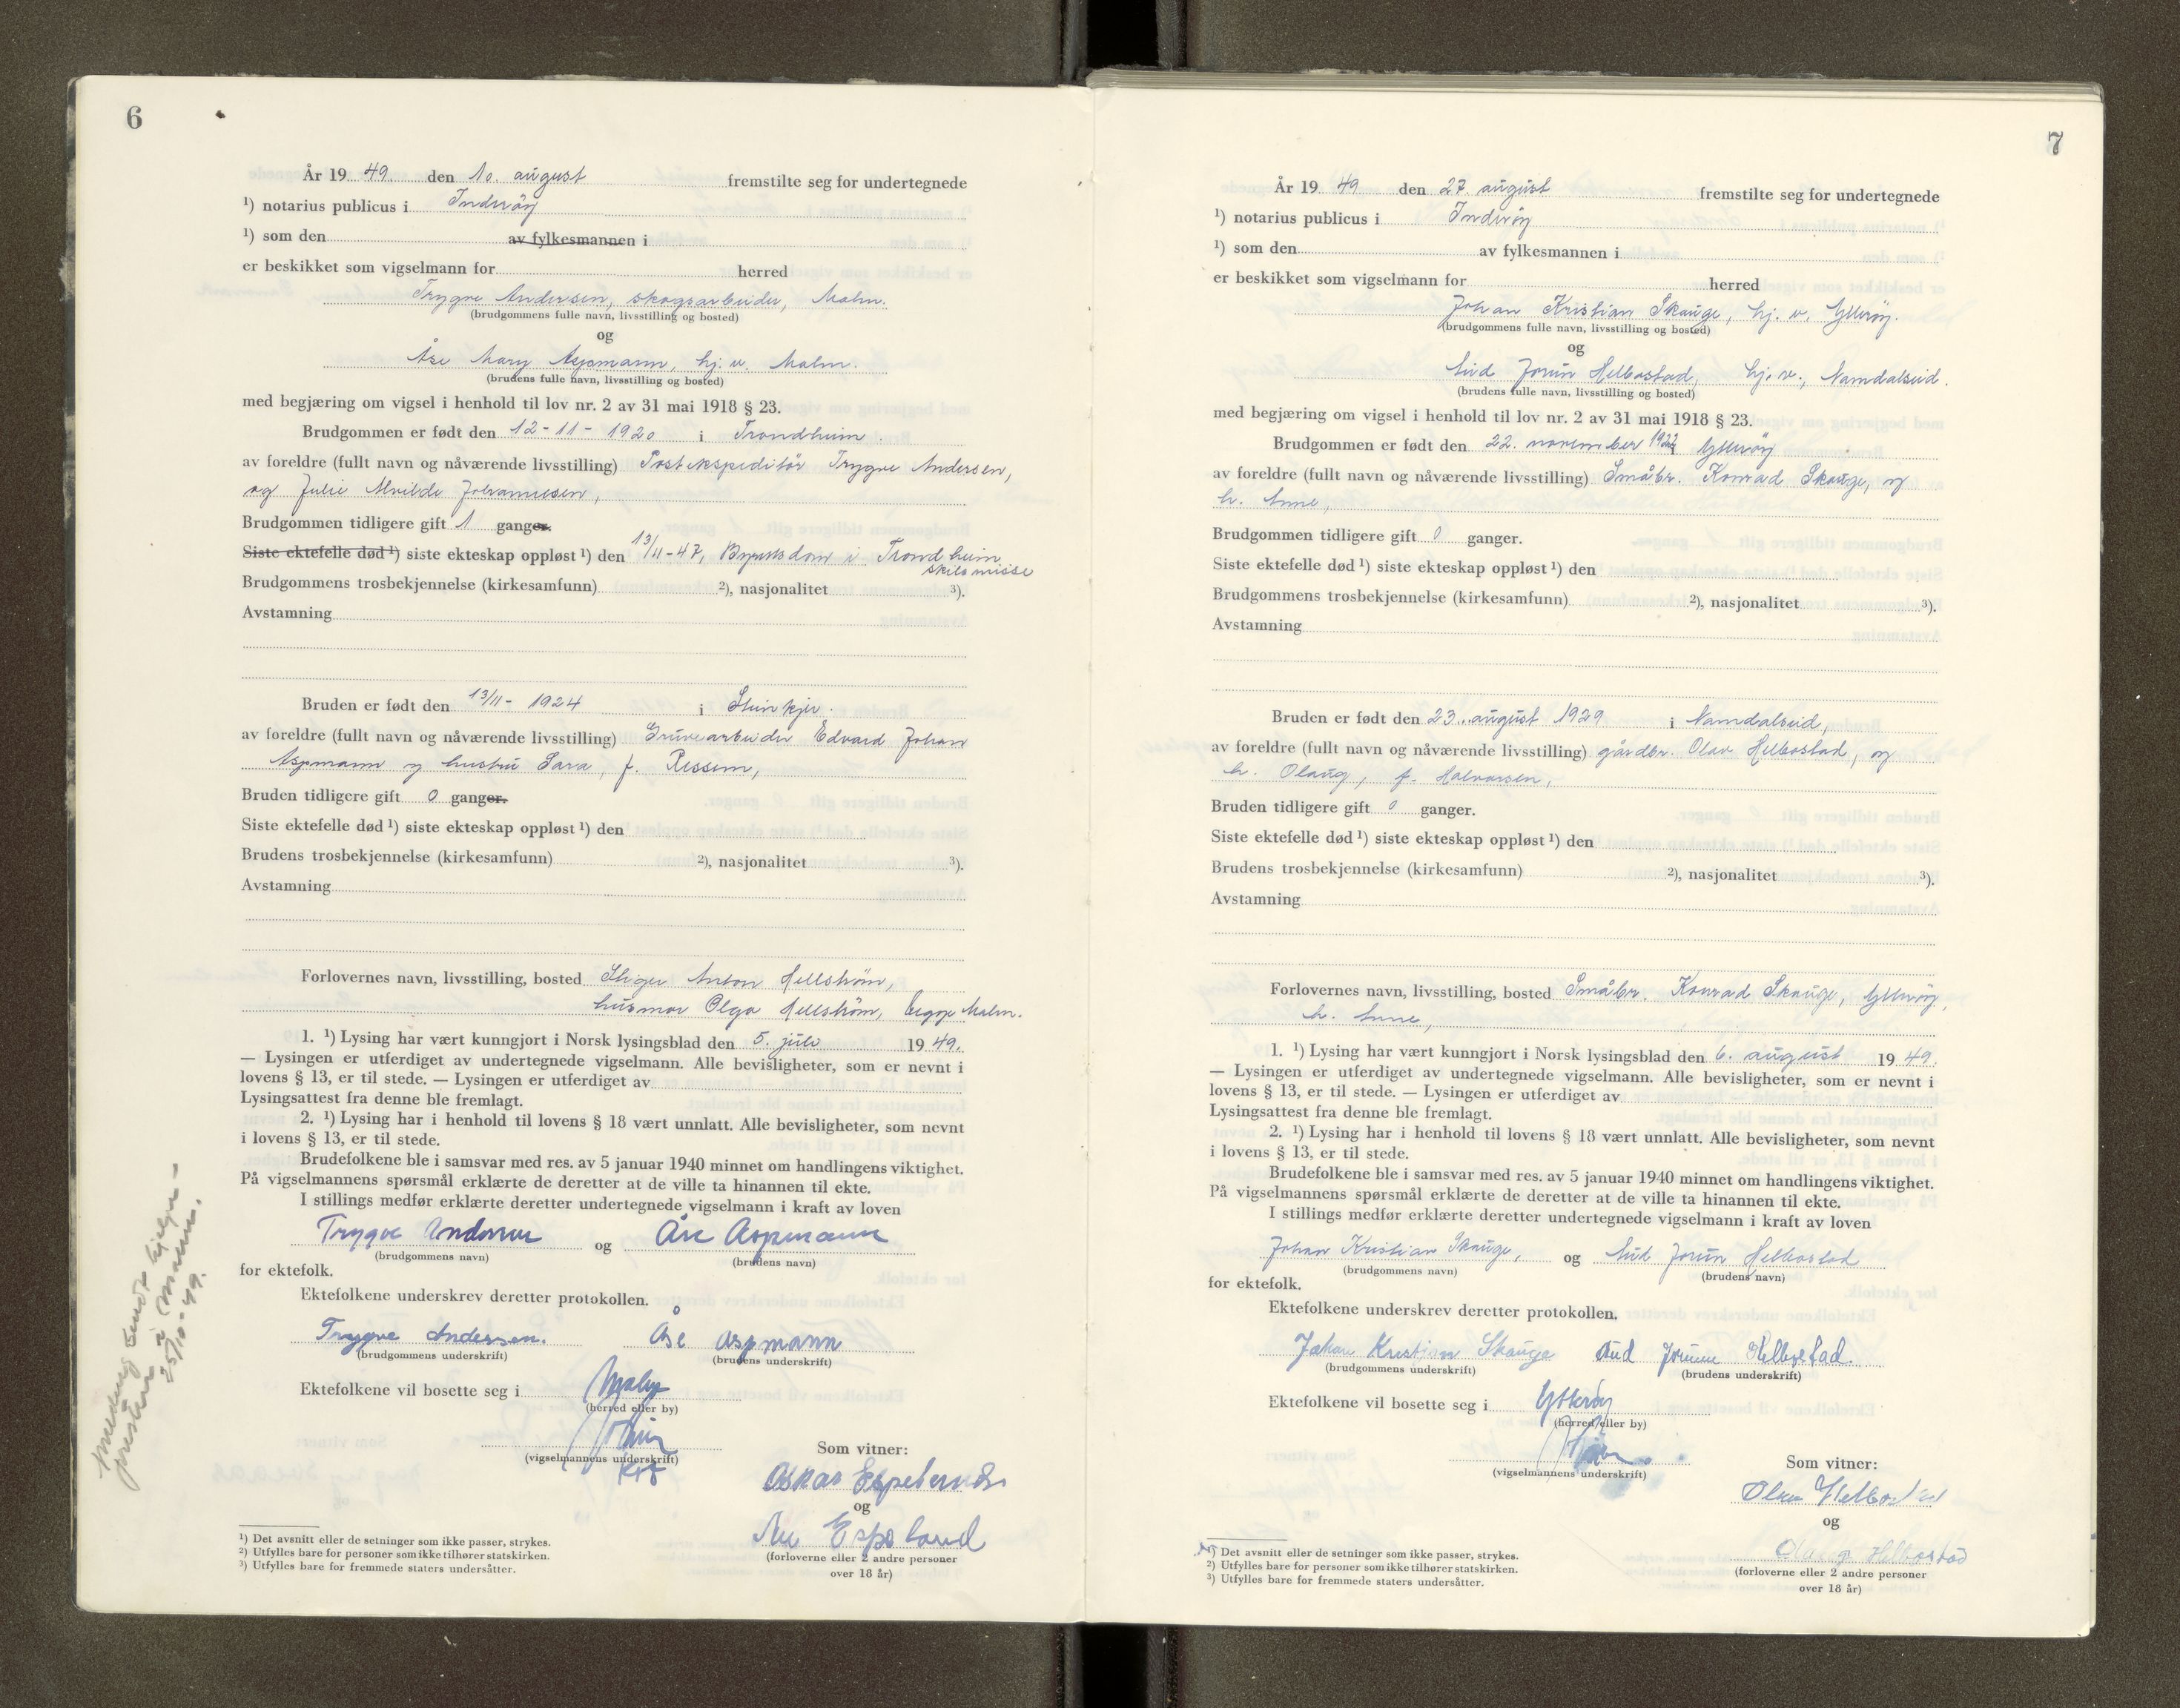 6
År 19 49 den 10. august fremstilte seg for undertegnede
¹) notarius publicus i Inderöy
¹) som den av fylkesmannen i
er beskikket som vigselmann for herred
Trygve Andersen, skogsarbeider, Malm.
(brudgommens fulle navn, livsstilling og bosted)
og
Åse Mary Aspmann, hj. v. Malm.
(brudens fulle navn, livsstilling og bosted)
med begjæring om vigsel i henhold til lov nr. 2 av 31 mai 1918 § 23.
Brudgommen er født den 12-11-1920 i Trondheim.
av foreldre (fullt navn og nåværende livsstilling) Postekspeditör Trygve Andersen,
og Julie Alvilde Johannesen,
Brudgommen tidligere gift 1 ganger.
Siste ektefelle død ¹) siste ekteskap oppløst ¹) den 13/11-47, Byrettsdom i Trondheim
skilsmisse
Brudgommens trosbekjennelse (kirkesamfunn) ²), nasjonalitet ³).
Avstamning
Bruden er født den 13/11- 1924 i Steinkjer.
av foreldre (fullt navn og nåværende livsstilling) Gruvearbeider Edvard Johan
Aspmann og hustru Sara, f. Ressem,
Bruden tidligere gift 0 ganger.
Siste ektefelle død ¹) siste ekteskap oppløst ¹) den
Brudens trosbekjennelse (kirkesamfunn) ²), nasjonalitet ³).
Avstamning
Forlovernes navn, livsstilling, bosted Stiger Anton Hellström,
husmor Olga Hellström, Malm.
1. ¹) Lysing har vært kunngjort i Norsk lysingsblad den 5. juli 19 49.
— Lysingen er utferdiget av undertegnede vigselmann. Alle bevisligheter, som er nevnt i
lovens § 13, er til stede. — Lysingen er utferdiget av
Lysingsattest fra denne ble fremlagt.
2. ¹) Lysing har i henhold til lovens § 18 vært unnlatt. Alle bevisligheter, som nevnt
i lovens § 13, er til stede.
Brudefolkene ble i samsvar med res. av 5 januar 1940 minnet om handlingens viktighet.
På vigselmannens spørsmål erklærte de deretter at de ville ta hinannen til ekte.
I stillings medfør erklærte deretter undertegnede vigselmann i kraft av loven
Trygve Andersen og Åse Aspmann
(brudgommens navn) (brudens navn)
for ektefolk.
Ektefolkene underskrev deretter protokollen.
Trygve Andersen. Åse Aspmann
(brudgommens underskrift) (brudens underskrift)
Ektefolkene vil bosette seg i Malm
(herred eller by)
(vigselmannens underskrift)
Som vitner:
Oskar
og
(forloverne eller 2 andre personer
over 18 år)
¹) Det avsnitt eller de setninger som ikke passer, strykes.
²) Utfylles bare for personer som ikke tilhører statskirken.
³) Utfylles bare for fremmede staters undersåtter.
Melding sendt
presten i Malm.
25/10-49.
7
År 19 49 den 27. august fremstilte seg for undertegnede
¹) notarius publicus i Inderöy
¹) som den av fylkesmannen i
er beskikket som vigselmann for herred
Johan Kristian Skauge, hj. v. Ytteröy.
(brudgommens fulle navn, livsstilling og bosted)
og
Aud Jorun Helbostad, hj. v., Namdalseid.
(brudens fulle navn, livsstilling og bosted)
med begjæring om vigsel i henhold til lov nr. 2 av 31 mai 1918 § 23.
Brudgommen er født den 22. november Ytteröy
av foreldre (fullt navn og nåværende livsstilling) Småbr. Konrad Skauge, og
h. Anne,
Brudgommen tidligere gift 0 ganger.
Siste ektefelle død ¹) siste ekteskap oppløst ¹) den
Brudgommens trosbekjennelse (kirkesamfunn) ²), nasjonalitet ³).
Avstamning
Bruden er født den 23. august 1929 i Namdalseid,
av foreldre (fullt navn og nåværende livsstilling) gårdbr. Olav Helbostad, og
h. Olaug, f. Halvorsen,
Bruden tidligere gift 0 ganger.
Siste ektefelle død ¹) siste ekteskap oppløst ¹) den
Brudens trosbekjennelse (kirkesamfunn) ²), nasjonalitet ³).
Avstamning
Forlovernes navn, livsstilling, bosted Småbr. Konrad Skauge, Ytteröy,
h. Anne,
1. ¹) Lysing har vært kunngjort i Norsk lysingsblad den 6. august 19 49.
— Lysingen er utferdiget av undertegnede vigselmann. Alle bevisligheter, som er nevnt i
lovens § 13, er til stede. — Lysingen er utferdiget av
Lysingsattest fra denne ble fremlagt.
2. ¹) Lysing har i henhold til lovens § 18 vært unnlatt. Alle bevisligheter, som nevnt
i lovens § 13, er til stede.
Brudefolkene ble i samsvar med res. av 5 januar 1940 minnet om handlingens viktighet.
På vigselmannens spørsmål erklærte de deretter at de ville ta hinannen til ekte.
I stillings medfør erklærte deretter undertegnede vigselmann i kraft av loven
Johan Kristian Skauge, og Aud Jorun Helbostad
(brudgommens navn) (brudens navn)
for ektefolk.
Ektefolkene underskrev deretter protokollen.
Johan Kristian Skauge Aud Jorunn Helbostad.
(brudgommens underskrift) (brudens underskrift)
Ektefolkene vil bosette seg i Ytteröy
(herred eller by)
(vigselmannens underskrift)
Som vitner:
Olav Helbostad
og
Olaug Helbostad
(forloverne eller 2 andre personer
over 18 år)
¹) Det avsnitt eller de setninger som ikke passer, strykes.
²) Utfylles bare for personer som ikke tilhører statskirken.
³) Utfylles bare for fremmede staters undersåtter.